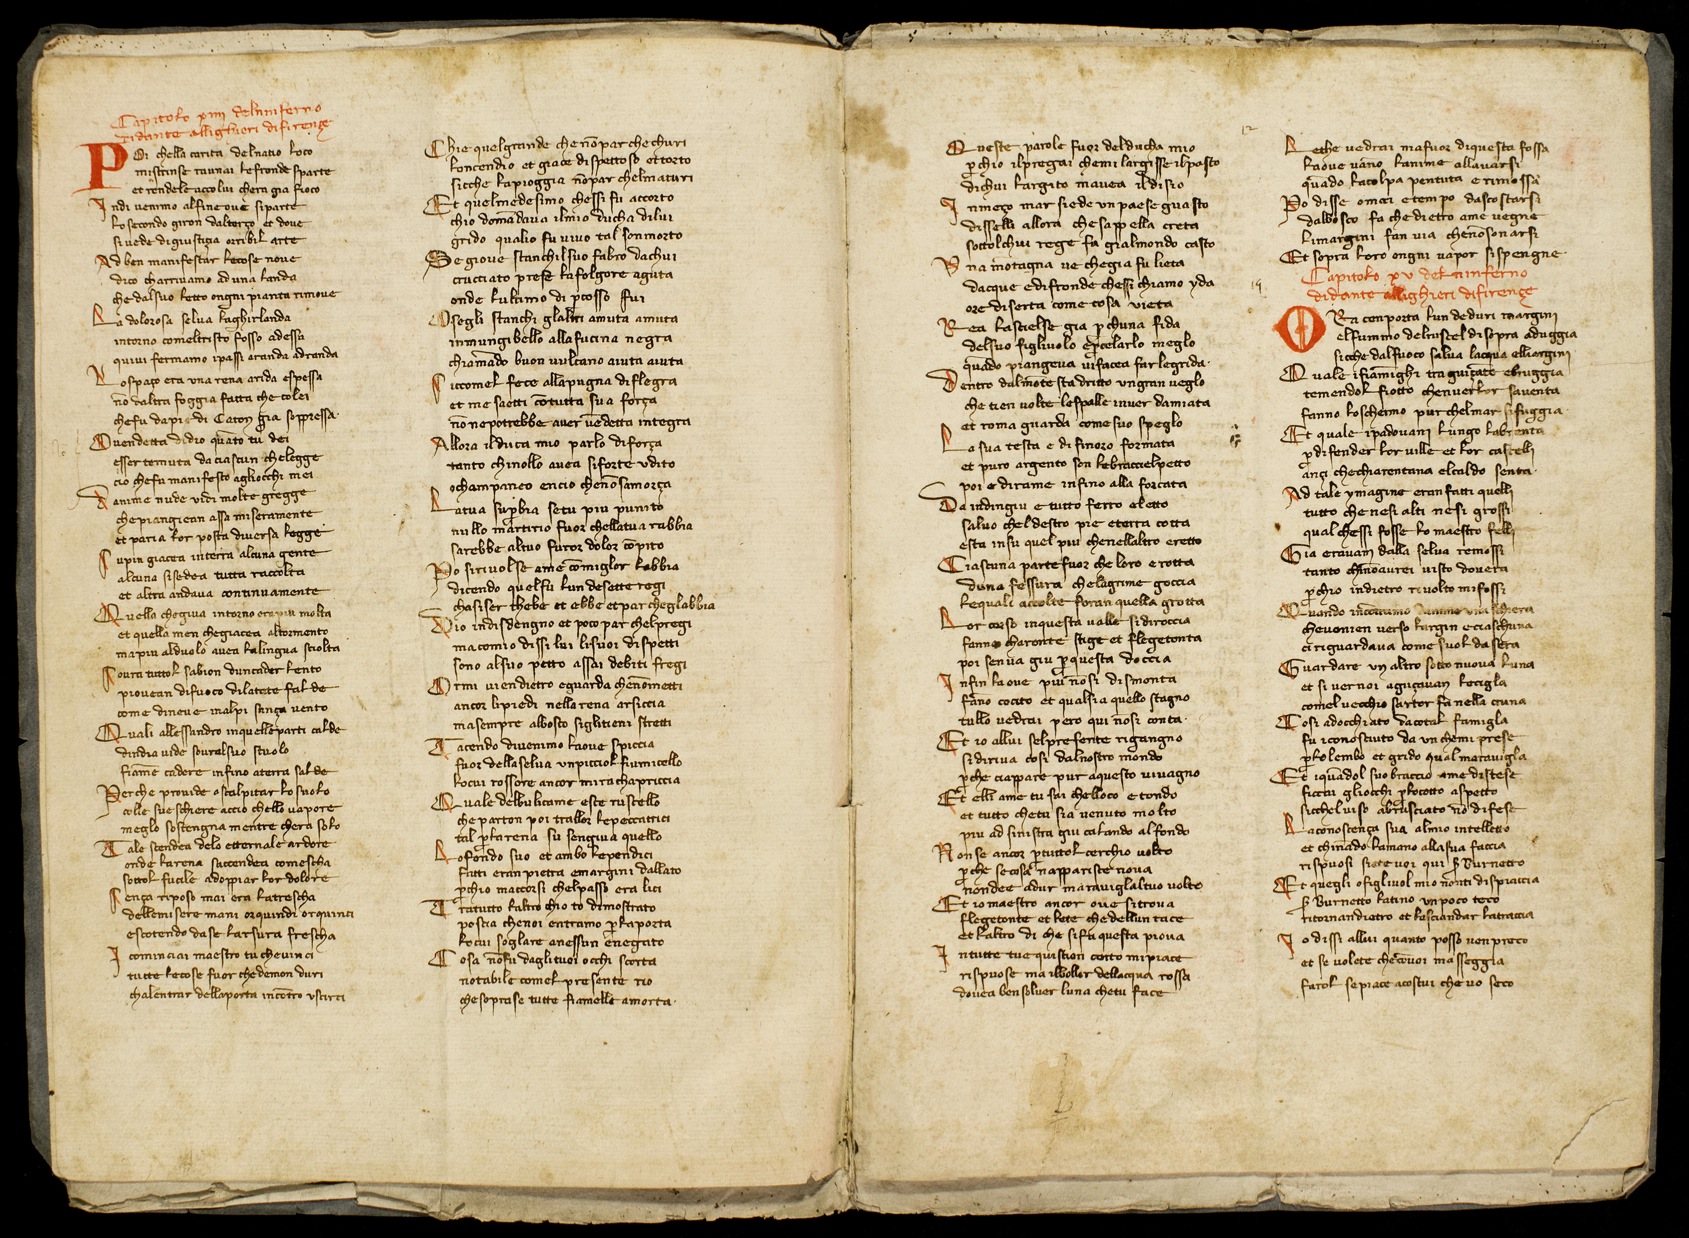 Capitolo xiiii delinferno
di dante allighieri di firençe
Poi chella carita del natio loco
mi strinse raunai le fronde sparte
et rendele accolui chera gia fioco
Indi venimo al fine ove si parte
lo secondo giron dal terço et dove
si vede di giustiçia orribil arte
Ad ben manifestar le cose nove
dico charrivamo ad una landa
che dal suo letto ongni pianta rimove
La dolorosa selva laghirlanda
intorno comel tristo fosso ad essa
quivi fermamo i passi aranda adranda
Lo spaço era una rena arida e spessa
nō daltra foggia fatta che colei
che fu da pie di Caton gia soppressa
O vendetta didio quāto tu dei
esser temuta da ciascun che legge
cio che fu manifesto agliocchi mei
Danime nude vidi molte gregge
che piangiean assa miseramente
et paria lor posta diversa legge
Supin giacea in terra alcuna gente
alcuna si sedea tutta raccolta
et altra andava continuamente
Quella che giva intorno era piu molta
et quella men che giacea al tormento
ma piu al duolo avea la lingua sciolta
Sovra tuttol sabion dun cader lento
piovean di fuoco dilatate falde
come di neve in alpi sança vento
Quali allessandro in quelle parti calde
dindia vide sovral suo stuolo
fiāme cadere infino a terra salde
Perche provide a scalpitar lo suolo
colle sue schiere accio chello vapore
meglo si stengna mentre chera solo
Tale scendea delo etternale ardore
onde larena saccendea comescha
sottol fucile adoppiar lor dolore
Sença riposo mai era la trescha
delle misere mani or quindi or quinci
escotendo da se larsura frescha
I cominciai maestro tu che vinci
tutte le cose fuor che demon duri
chalentrar della porta incōtro uscirci
Chie quel grande che nō par che churi
loncendio et giace dispettoso et torto
sicche la pioggia nō par chel maturi
Et quel medesimo chessi fu accorto
chio domādava il mio ducha di lui
grido qualio fu vivo tal son morto
Se giove stanchil suo fabro da chui
crucciato prese la folgore aguta
onde lultimo di pcosso fui
O segli stanchi glaltri a muta a muta
in mungibello alla fucina negra
chiamādo buon vulcano aiuta aiuta
Siccomel fece alla pugna di flegra
et me saetti cō tutta sua força
nō ne potrebbe aver vēdetta integra
Allora il duca mio parlo di força
tanto chi nollo avea si forte udito
o champaneo en cio che nō samorça
La tua supbia se tu piu punito
nullo martirio fuor chella tua rabbia
sarebbe al tuo furor dolor cōpito
Po si rivolse a me cō miglor labbia
dicendo quel fu lun de sette regi
chasiser thebe et ebbe et par che glabbia
Dio in disdengno et poco par chel pregi
ma comio dissi lui li suoi dispetti
sono al suo petto assai debiti fregi
Or mi vien dietro e guarda che nō metti
ancor li piedi nella rena arsiccia
ma sempre al bosco si gli tieni stretti
Tacendo divenimo laove spiccia
fuor della selva un picciol fiumicello
lo cui rossore ancor mi rachapriccia
Quale del bulicame esce ruscello
che parton poi tra llor le peccatrici
tal p la rena su sen giva quello
Lo fondo suo et ambo le pendici
fatti eran pietra e margini dallato
pchio maccorsi chel passo era lici
Tra tutto laltro chio to dimostrato
poscia che noi entramo p la porta
lo cui soglare a nessun e negato
Cosa nō fu dagli tuoi occhi scorta
notabile comel presente rio
che sopra se tutte fiamelle amorta
Queste parole fuor del ducha mio
pchio il pregai che mi largisse il pasto
di chui largito mavea il disio
In meço mar siede un paese guasto
disselli allora che sappella creta
sottol chui rege fu gial mondo casto
Una mōtagna ve che gia fu lieta
dacque e di fronde chessi chiamo yda
ore diserta come cosa vieta
Rea la scielse gia p chuna fida
del suo figliuolo e p celarlo meglo
quādo piangeva vi facea far le grida
Dentro dal mōte sta dritto un gran veglo
che tien volte le spalle inver damiata
et roma guarda come suo speglo
La sua testa e di fin oro formata
et puro argento son le braccia el petto
poi e di rame infino alla forcata
Da indi in giu e tutto ferro eletto
salvo chel destro pie e terra cotta
e sta in su quel piu che nellaltro eretto
Ciascuna parte fuor che loro e rotta
duna fessura che lagrime goccia
le quali accolte foran quella grotta
Lor corso in questa valle si diroccia
fanno charonte stige et flegetonta
poi sen va giu p questa doccia
Infin laove piu nō si dismonta
fāno cocito et qual sia quello stagno
tullo vedrai pero qui nō si conta
Et io allui sel presente rigangno
si diriva cosi dal nostro mōdo
pche ci appare pur a questo vivagno
Et elli a me tu sai chelloco e tondo
et tutto che tu sia venuto molto
piu ad sinistra giu calando al fondo
Non se ancor p tuttol cerchio volto
pche se cosa nappariste nova
non dee adur maravigla al tuo volto
Et io maestro ancor ove si trova
flegetonte et lete che dellun tace
et laltro di che si fa questa piova
In tutte tue quistion certo mi piace
rispuose ma il bollor dellacqua rossa
dovea ben solver luna che tu face
12
Lethe vedrai ma fuor di questa fossa
laove vāno lanime allavarsi
quādo la colpa pentuta e rimossa
Po disse omai e tempo da scostarsi
dal bosco fa che dietro a me vegne
li margini fan via che nō son arsi
Et sopra loro ongni vapor si spengne
Capitolo xv del ninferno
di dante allighieri di firençe
19
Ora cen porta lun de duri margini
el fummo del ruscel di sopra aduggia
sicche dal fuoco salva lacqua elli argini
Quale i fiāmighi tra guiçate e bruggia
temendol fiotto chen ver lor saventa
fanno lo schermo pur chel mar si fuggia
Et quale i padovani lungo la brenta
p difender lor ville et lor castelli
ançi che chiarentana el caldo senta
Ad tale ymagine eran fatti quelli
tutto che ne si alti ne si grossi
qual chessi fosse lo maestro felli
Gia eravam dalla selva remossi
tanto chi nō avrei visto dovera
pchio indietro rivolto mi fossi
Quando incōtramo danime una schiera
che venien verso largin e ciaschuna
ci riguardava come suol da sera
Guardare un altro sotto nuova luna
et si ver noi aguçavan le cigla
comel vecchio sartor fa nella cruna
Cosi adocchiato da cotal famigla
fu iconosciuto da un che mi prese
p lo lembo et grido qual maravigla
Et i quādol suo braccio a me distese
ficcai gliocchi p lo cotto aspetto
sicchel viso abrusciato nō difese
La conoscença sua al mio intelletto
et chinādo la mano alla sua faccia
rispuosi siete voi qui s Burnetto
Et quegli o figliuol mio nō ti dispiaccia
s Burnetto latino un poco teco
ritorna indietro et lasciandar la traccia
Io dissi allui quanto posso ven preco
et se volete che cō voi masseggia
farol se piace a costui che vo seco